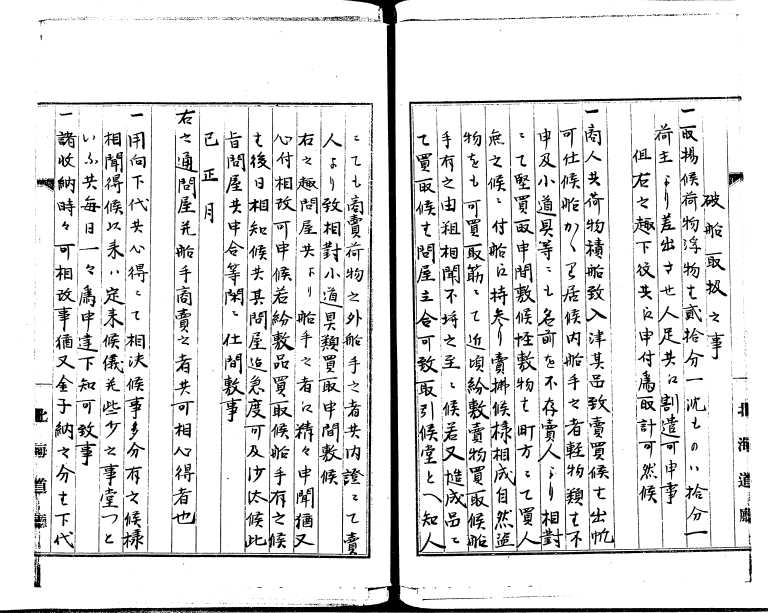 破船取扱之事
一取揚候荷物浮物者貳拾分一沈ものハ拾分一
荷主より差出させ人足共江割遣可申事
但右之趣下役共江申付為取計可然候
一商人共荷物積船致入津其品致賣買候者出帆
可仕候船かゝり居候内船手之者軽物類者不
申及小道具等ニも名前を不存賣人より相對
ニて堅買取申間敷候怪敷物者町方ニて買人
無之候ニ付船江持参り賣拂候様相成自然盗
物をも可買取筋ニて近頃紛敷賣物買取候船
手有之由粗相聞不埒之至ニ候若又造成品ニ
て買取候者問屋立合可致取引候堂とへ知人
ニても商賣荷物之外船手之者共内證ニて賣
人より致相對小道具類買取申間敷候
右之趣問屋共より船手之者江精々申聞猶又
心付相改可申候若紛敷品買取候船手有之候
者後日相知候共其問屋迄急度可及沙汰候此
旨問屋共申合等閑ニ仕間敷事
己正月
右之通問屋并船手商賣之者共可相心得者也
一用向下代共心得ニて相決候事多分有之候様
相聞得候以来ハ定来候儀并些少之事堂つと
いふ共毎日一々為申達下知可致事
一諸收納時々可相改事猶又金子納之分者下代
北海道廳
北海道廳